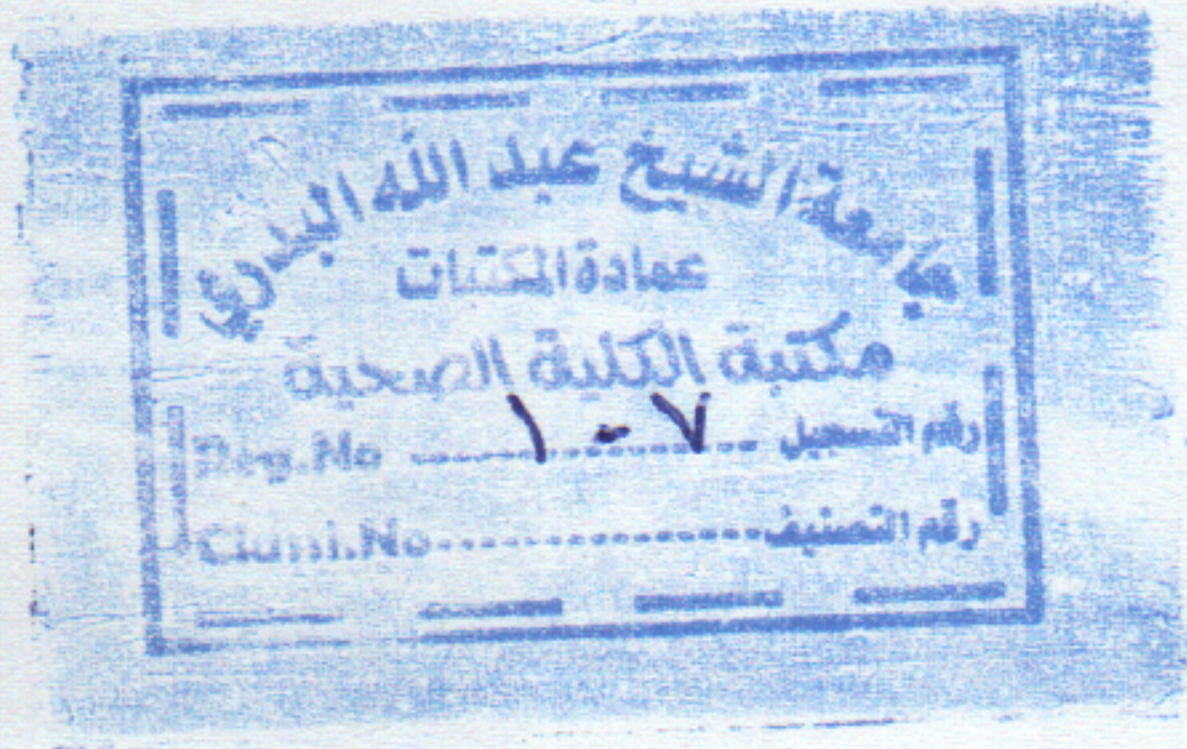 جامعة الشيخ عبد الله البدري
عمادة المكتبات
مكتبة الكلية الصحية
رقم التسجيل ١٠٧ Reg.No
رقم التصنيف